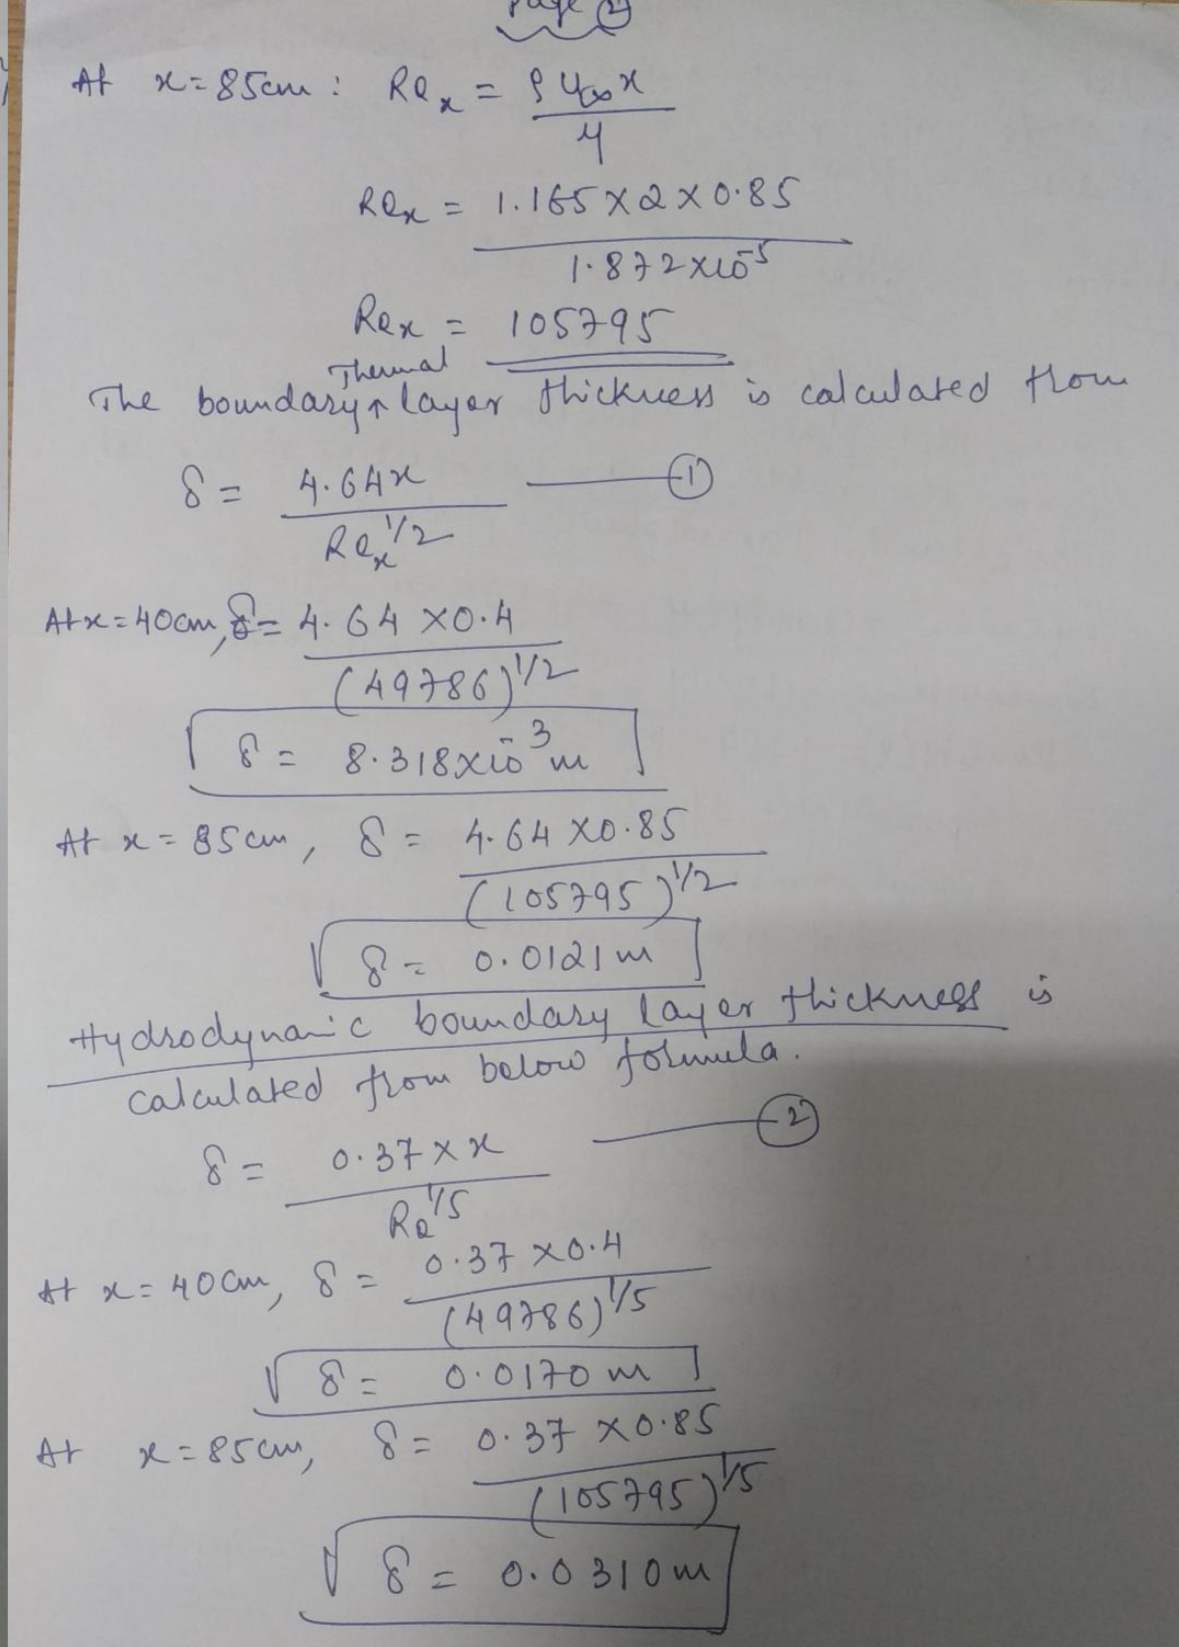 Page ②
At x=85cm : Reₓ = ρ u∞ x / μ
Reₓ = 1.165×2×0.85 / 1.872×10⁻⁵
Reₓ = 105795
Thermal
The boundary layer thickness is calculated from
δ = 4.64x / Reₓ^1/2 —— ①
At x=40cm, δ= 4.64 ×0.4 / (49786)^1/2
δ = 8.318×10⁻³ m
At x=85cm, δ = 4.64 ×0.85 / (105795)^1/2
δ = 0.0121m
Hydrodynamic boundary layer thickness is
calculated from below formula.
δ = 0.37××x / Re^1/5 —— ②
At x=40cm, δ = 0.37 ×0.4 / (49786)^1/5
δ = 0.0170m
At x=85cm, δ = 0.37 ×0.85 / (105795)^1/5
δ = 0.0310m